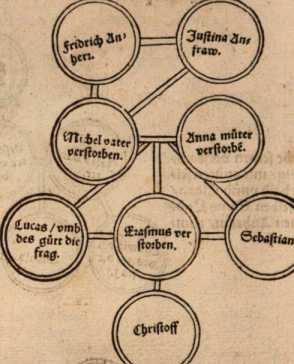 Fridrich An⸗
herr.
Justina An⸗
fraw.
Michel vater
verstorben.
Anna můter
verstorbẽ.
Lucas / vmb
des gůtt die
frag.
Erasmus ver
storben.
Sebastian
Christoff